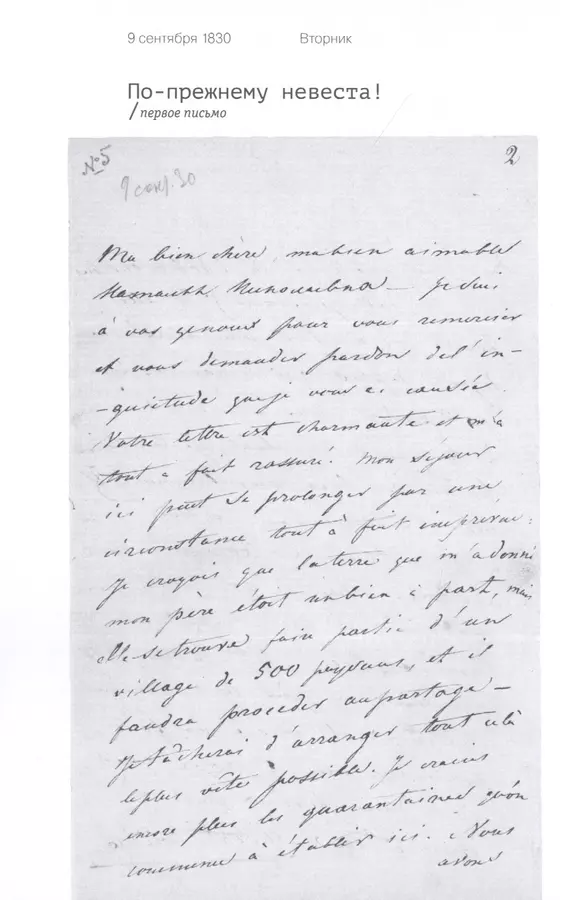 9 сентября 1830 Вторник
По-прежнему невеста!
/первое письмо
№5
2
9 сент. 30
Ma bien chère, ma bien aimable
Наталья Николаевна — je suis
à vos genoux pour vous remercier
et vous demander pardon de l'in-
-quiétude que je vous ai causée.
Votre lettre est charmante et m'a
tout à fait rassuré. Mon séjour
ici peut se prolonger par une
circonstance tout à fait imprévue:
Je croyais que la terre que m'a donné
mon père étoit un bien à part, mais
elle se trouve faire partie d'un
village de 500 paysans, et il
faudra procéder au partage —
Je tâcherai d'arranger tout cela
le plus vite possible. Je crains
encore plus les quarantaines qu'on
commence à établir ici. Nous
avons